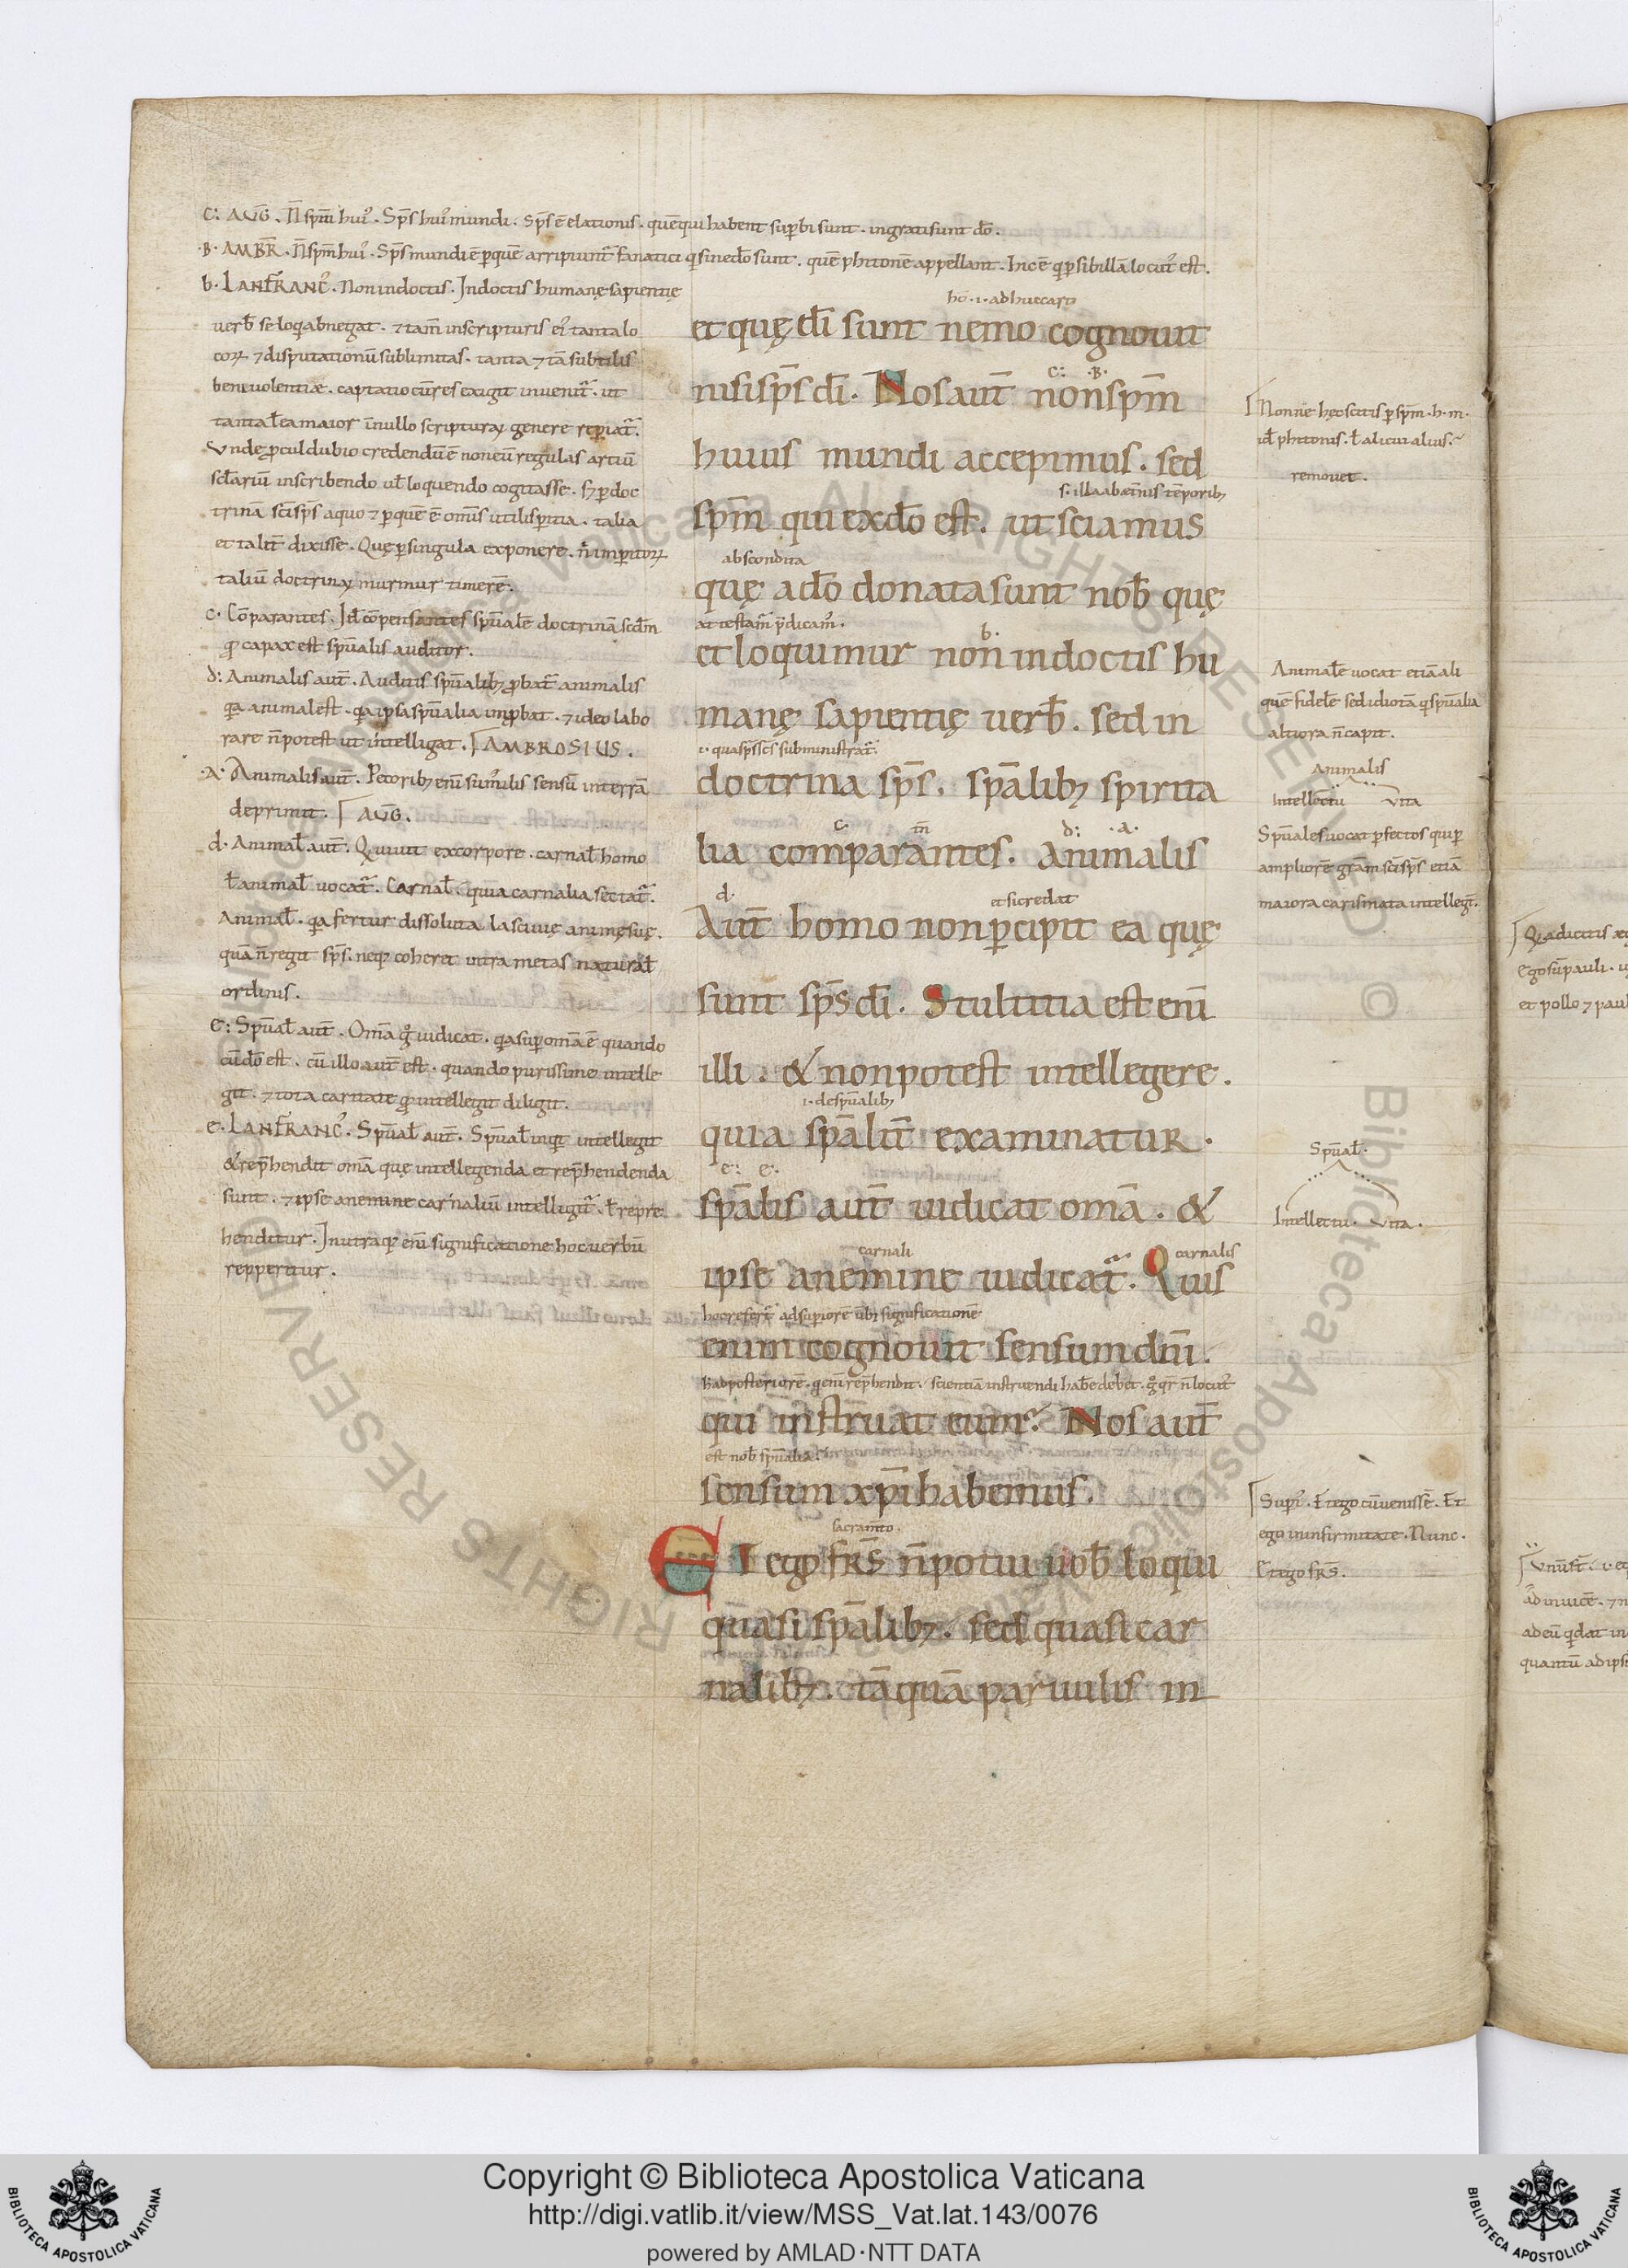 C: AUḠ. N̄ sp̄m hui᾽. Sp̄s hui᾽ mundi. Sp̄s ē elationis. quē qui habent sup̱bi sunt. ingrati sunt dō.
B. AMBR̄. N̄ sp̄m hui᾽. Sp̄s mundi ē ꝑ quē arripiunt᷑ fanatici qͥ sine dō sunt. quē phitonē appellant. Inc ē qͥ ꝑ sibillā locut᾽ est.
b. LANFRANC᾽. Non in doctis. Indoctis humanę sapientię
verb̄ se loqͥ abnegat. ⁊ tam̄ in scripturis ei᾽ tanta lo
coꝝ ⁊ disputationū sublimitas. tanta ⁊ tā subtilis
beneuolentiæ. captatio cū res exigit inuenit᷑. ut
tanta ł ea maior in nullo scripturaꝝ genere repiat᷑.
Unde ꝓcul dubio credendū ē non eū regulas artiū
sc̄lariū in scribendo uł loquendo cogitasse. sꝫ ꝑ doc
trinā sc̄i sp̄s a quo ⁊ ꝑ quē ē om̄is utilis ꝑitia. talia
et talit̄ dixisse. Quę ꝑ singula exponere. nͥ imꝑitoꝝ
taliū doctrinaꝝ murmur timerē.
c. Cōparantes. Id̄ cōpensantes spūalē doctrinā scdm̄
qđ capax est spūalis auditor.
d: Animalis aut̄. Auditis spūalibꝫ ꝓbat᷑ animalis
qͣ animal est. qͣ ipsa spūalia inꝓbat. ⁊ ideo labo
rare n̄ potest ut intelligat. AMBROSIUS.
A. Animalis aut̄. Pecoribꝫ eni᷑ similis sensū in terrā
deprimit. AUḠ.
d. Animał aut̄. Q̇ uiuit ex corpore. carnał homo
ł animał uocat᷑. Carnał. quia carnalia sectat᷑.
Animał. qͣ fertur dissoluta lasciuię animę suę.
quā n̄ regit sp̄s. neqꝫ cohercet intra metas naturał
ordinis.
e: Spūał aut̄. Om̄a g͛ iudicat. qͣ sup̱ om̄a ē quando
cū dō est. cū illo aut̄ est. quando purissime intelle
git. ⁊ tota caritate qđ intellegit diligit.
e. LANFRANC᾽. Spūał aut̄. Spūał inqͥt intellegit
& rep̄hendit om̄a quę intellegenda et rep̄hendenda
sunt. ⁊ ipse a nemine carnaliū intelligit᷑. ł repre
henditur. In utraqꝫ eni᷑ significatione hoc uerbū
repperitur.
hō .i. adhuc caro
et quę dī sunt nemo cognouit
c: .B.
nisi sp̄s dī. Nos aut̄ non sp̄m
huius mundi accepimus. sed
s. illa ab æt̄nis tēporibꝫ
sp̄m qui ex dō est. ut sciamus
abscondita
quę a dō donata sunt nob̄ quę
attestam᷑ p̄dicam᷑.
b.
et loquimur non in doctis hu
manę sapientię verb̄. sed in
i. qua sp̄s sc̄s subministrat᷑.
doctrina sp̄s. sp̄alibꝫ spirita
c. m̄ d: .a.
lia comparantes. Animalis
d. et si credat
Aut̄ homo non ꝑcipit ea quę
sunt sp̄s dī. Stultitia est enī
illi. & non potest intellegere.
i. de spūalibꝫ
quia sp̄alit̄ examinatur.
e: e.
sp̄alis aut̄ iudicat om̄a. &
carnali carnalis
ipse a nemine iudicat᷑. Quis
hoc refert᷑ ad superiorē ūbi significationē
enim cognouit sensum dn̄i.
ł ad posteriorē. qͥ eni᷑ rep̄hendit. scientiā instruendi habe debet. g͛ qͬ n̄ locut᾽
qui instruat eum? Nos aut̄
est nob̄ spūalia.
sensum xp̄i habemus.
sacram̄to.
Et ego fr̄s n̄ potui uob̄ loqui
quasi sp̄alibꝫ. sed quasi car
nalibꝫ. tāquā paruulis in
Nonne hęc scitis ꝑ sp̄m. h. m.
id̄ phitonis. ł alicui alius.
remouet.
Animalē uocat etiā ali
quē fidelē sed idiotā qͥ spūalia
altiora n̄ capit.
Animalis
Intellectū Vita
Spūales uocat ꝑfectos qui ꝑ
ampliorē grām sc̄i sp̄s etiā
maiora carismata intellegt̄.
Spūał.
Intellectu. Vita.
Supͥ. Et ego cū uenissē. Et
ego in infirmitate. Nunc.
Et ego fr̄s.
Copyright © Biblioteca Apostolica Vaticana
http://digi.vatlib.it/view/MSS_Vat.lat.143/0076
powered by AMLAD·NTT DATA
BIBLIOTECA APOSTOLICA VATICANA
BIBLIOTECA APOSTOLICA VATICANA